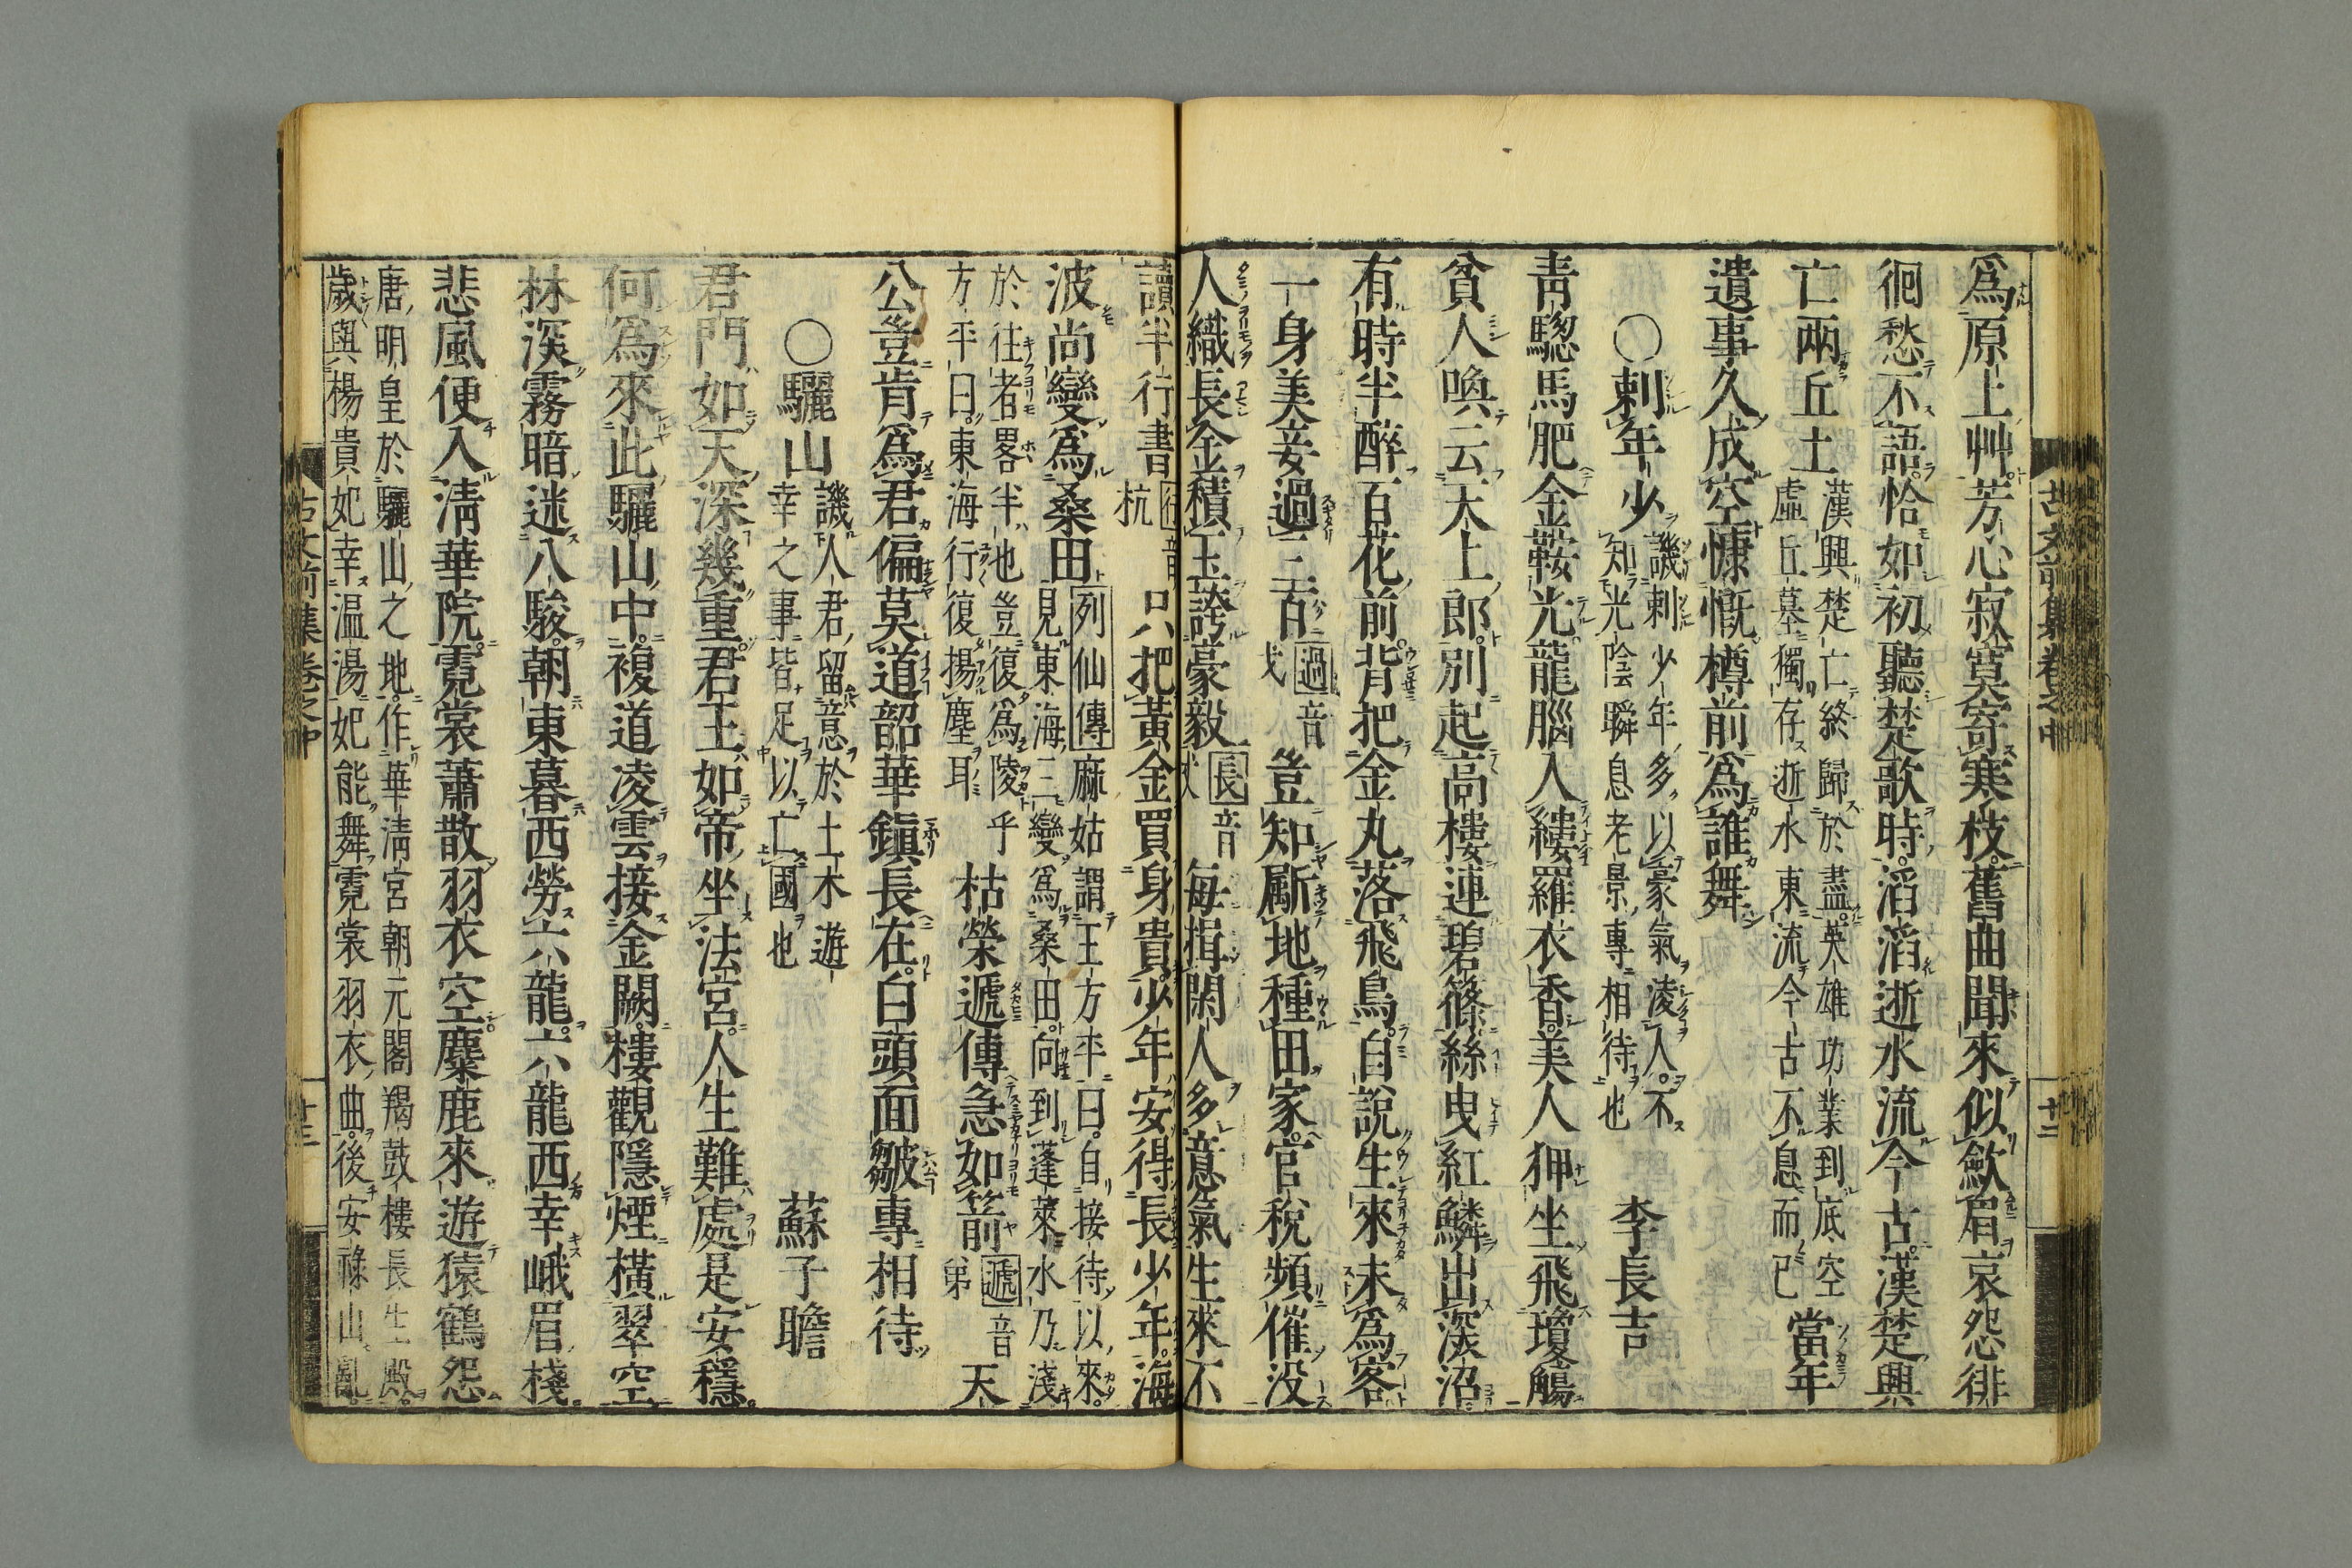 爲原上艸芳心寂寞寄寒枝舊曲聞來似歛眉哀怨徘
徊愁不語恰如初聽楚歌時滔滔逝水流今古漢楚興
亡兩丘土
漢興楚亡終歸於盡英雄功業到底空
虛丘墓獨存逝水東流今古不息而已
當年
遺事久成空慷慨樽前爲誰舞
○刺年少
譏刺少年多以豪氣凌人不
知光陰瞬息老景專相待也
李長吉
青驄馬肥金鞍光龍腦入縷羅衣香美人狎坐飛瓊觴
貧人喚云天上郎別起高樓連碧篠絲曳紅鱗出深沼
有時半醉百花前背把金丸落飛鳥自說生來未爲客
一身美妾過三百
過音
戈
豈知劚地種田家官稅頻催没
人織長金積玉誇豪毅
長音
每揖閑人多意氣生來不
讀半行書
行音
杭
只把黃金買身貴少年安得長少年海
波尚變爲桑田
列仙傳麻姑謂王方平曰自接待以來
見東海三變爲桑田向到蓬萊水乃淺
於往者畧半也豈復爲陵乎
方平曰東海行復揚塵耳
枯榮遞傳急如箭
遞音
第
天
公豈肯爲君偏莫道韶華鎭長在白頭面皺專相待
○驪山
譏人君留意於土木遊
幸之事皆足以亡國也
蘇子瞻
君門如天深幾重君王如帝坐法宮人生難處是安穩
何爲來此驪山中複道凌雲接金闕樓觀隱煙橫翠空
林深霧暗迷八駿朝東暮西勞六龍六龍西幸峨眉棧
悲風便入淸華院霓裳蕭散羽衣空麋鹿來遊猿鶴怨
唐明皇於驪山之地作華淸宮朝元閣羯鼓樓長生殿
歲與楊貴妃幸温湯妃能舞霓裳羽衣曲後安祿山亂
古文前集卷之中
廿二
古文前集卷之中
廿三